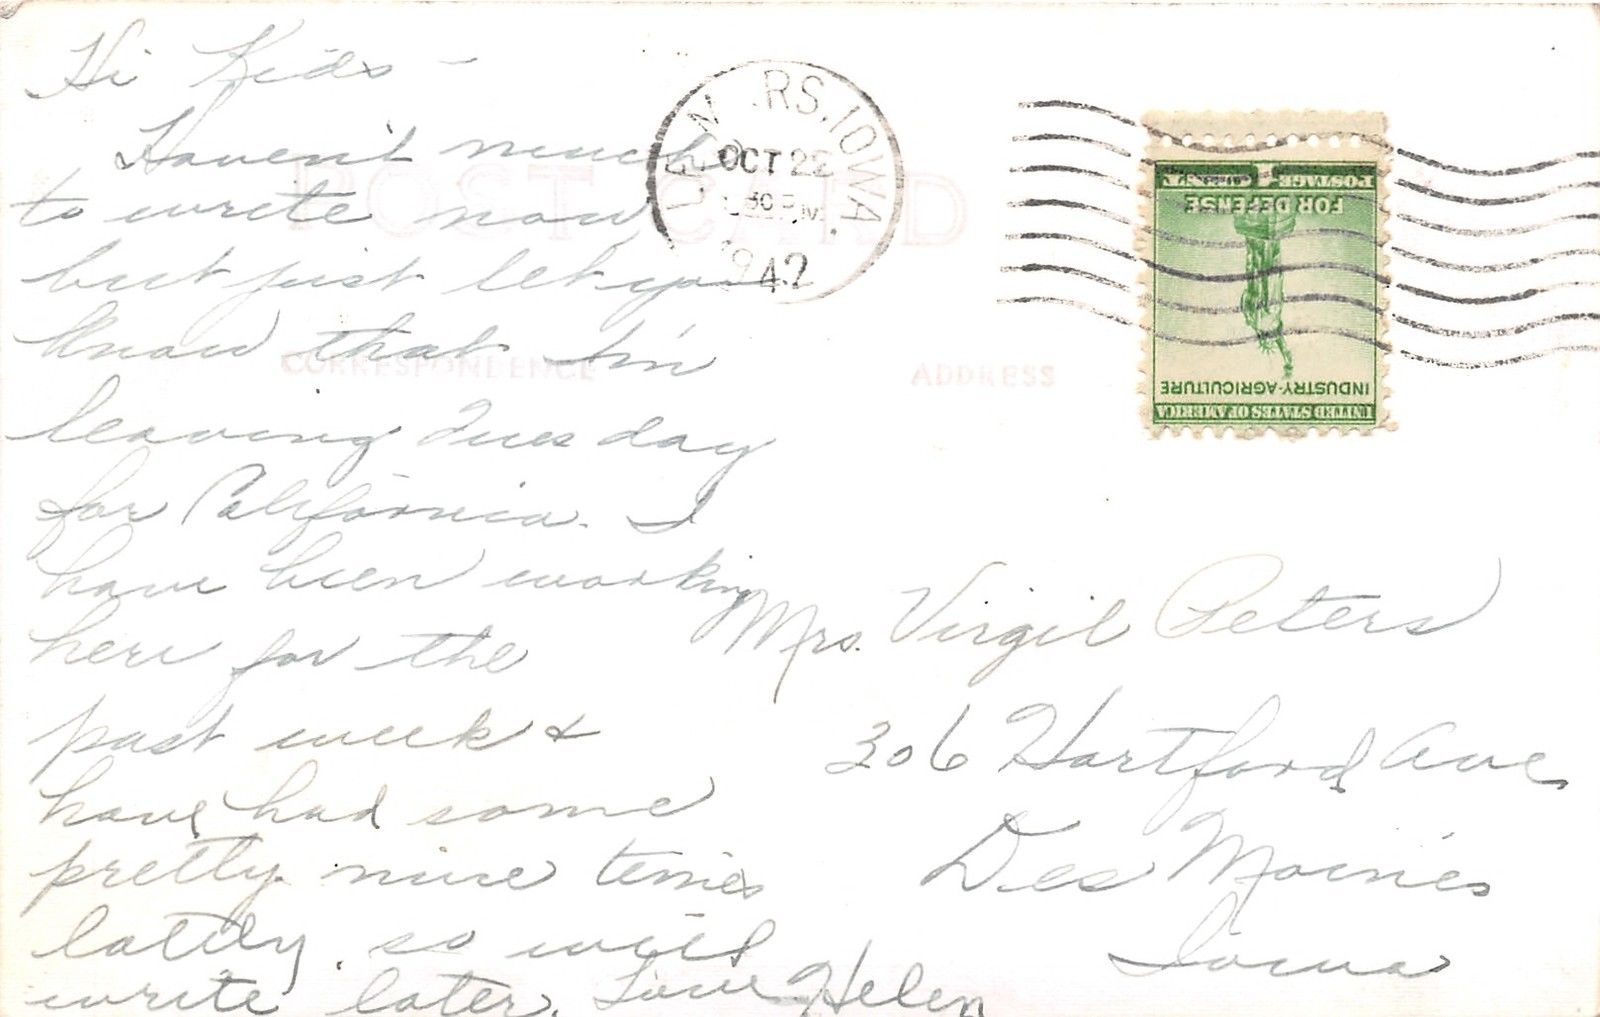 Hi Kids -
Haven't much
to write now
but just let you
know that I'm
leaving Tuesday
for California. I
have been working
here for the
past week &
have had some
pretty nice times
lately. so will
write later. Love Helen
POST CARD
CORRESPONDENCE
ADDRESS
RS, IOWA.
OCT 22
1942
1 CENT
POSTAGE
FOR DEFENSE
INDUSTRY-AGRICULTURE
UNITED STATES OF AMERICA
Mrs. Virgil Peters
306 Hartford Ave
Des Moines
Iowa